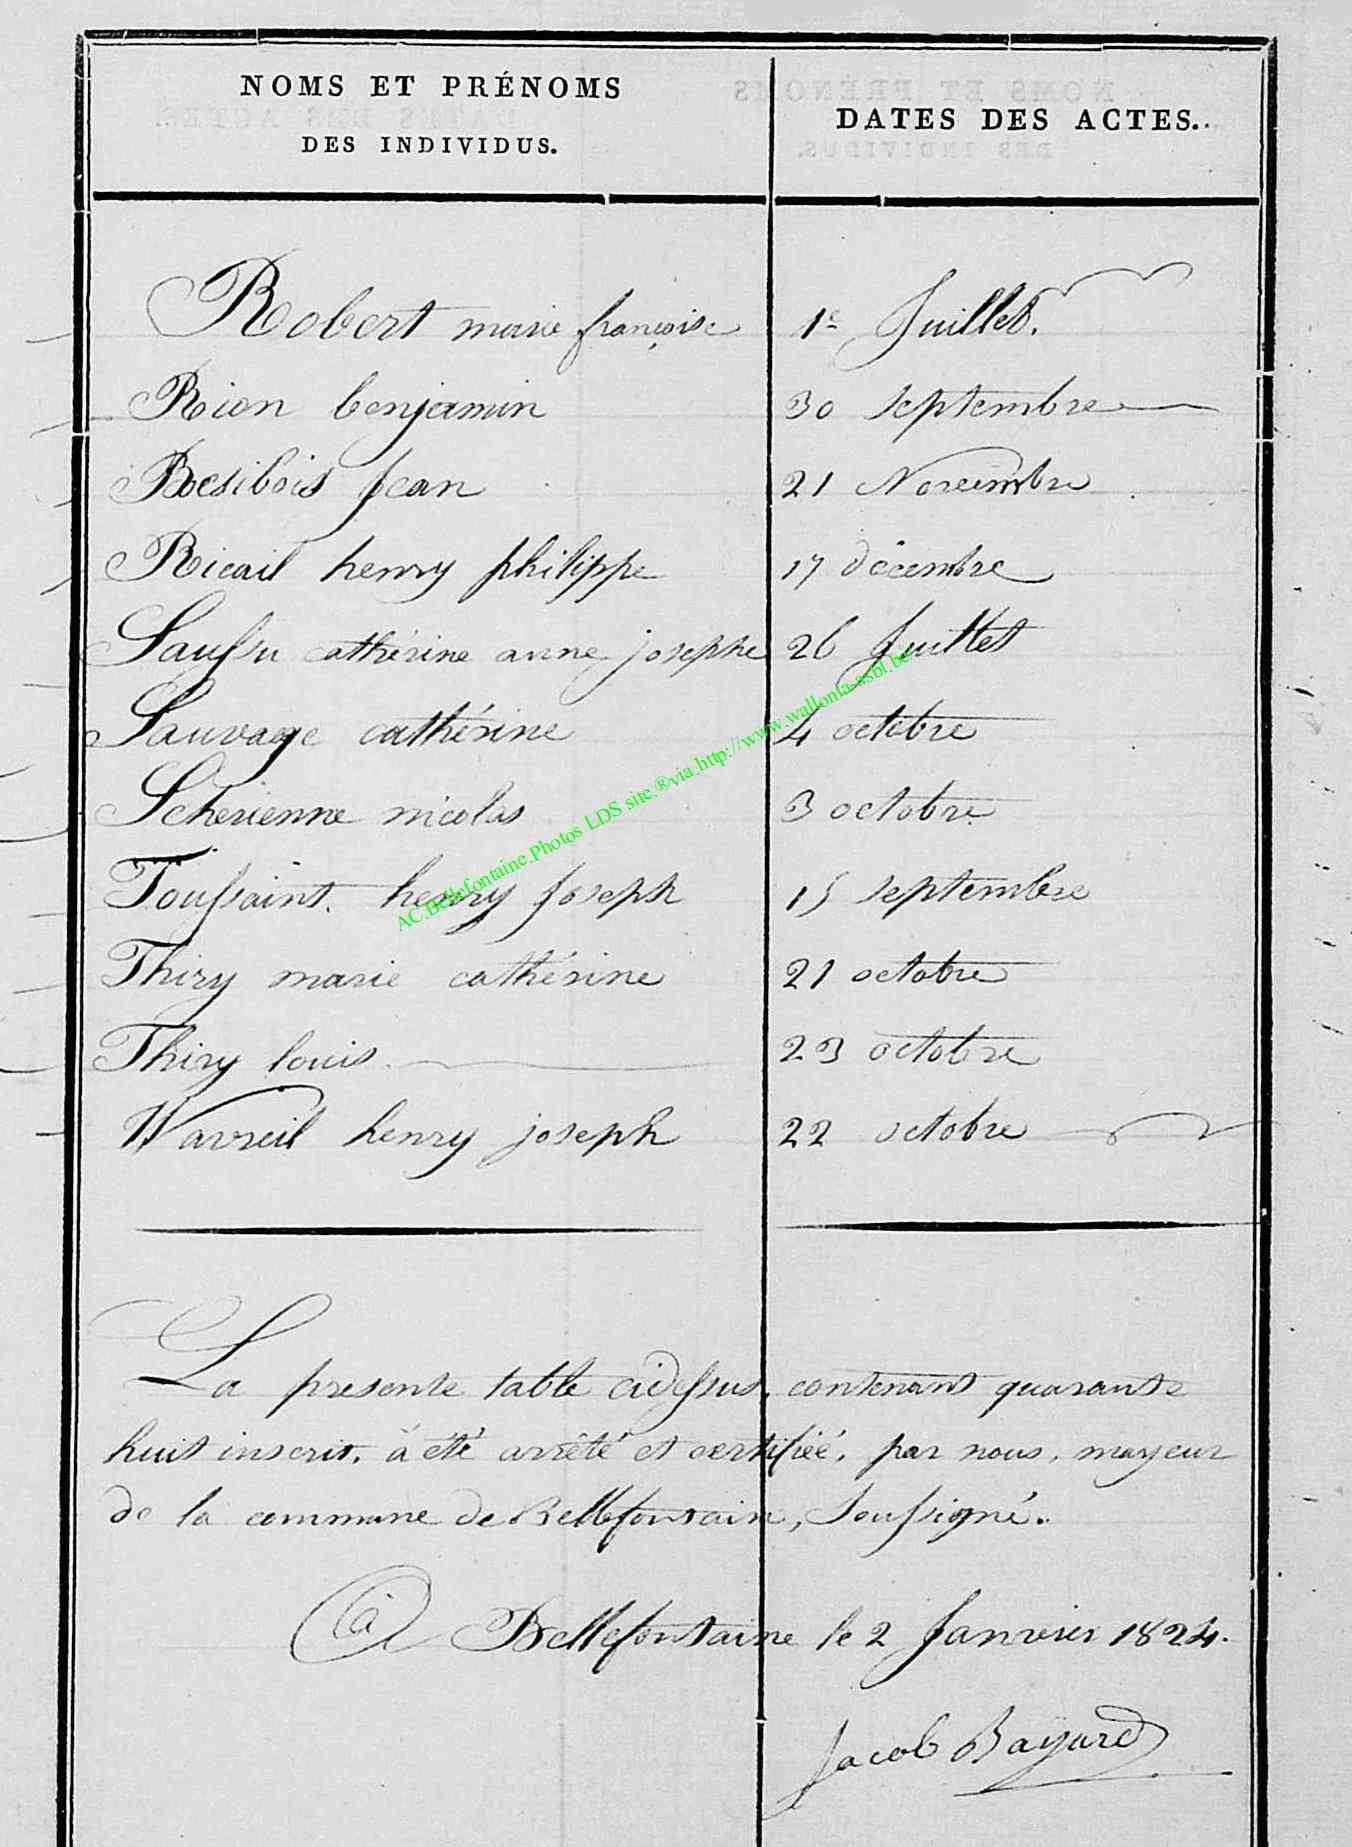 NOMS ET PRÉNOMS
DES INDIVIDUS.
DATES DES ACTES.
Robert marie françoise 1e Juillet.
Rion benjamin 30 septembre
Resibois Jean 21 Novembre
Ricail henry philippe 17 décembre
Saussu cathérine anne josephe 26 Juillet
Sauvage cathérine 4 octobre
nicolas 3 octobre
Toussaint henry Joseph 15 septembre
Thiry marie cathérine 21 octobre
Thiry louis 23 octobre
Wavreil henry joseph 22 octobre
AC.Bellefontaine.Photos LDS site.®via.http://www.wallonia-asbl.be
La presente table cidessus, contenant quarante
huit inscrit, à été arrêté et certifiéé, par nous, mayeur
de la commune de Bellefontaine, Soussigné.
à Bellefontaine le 2 Janvier 1824.
Jacob Bayard